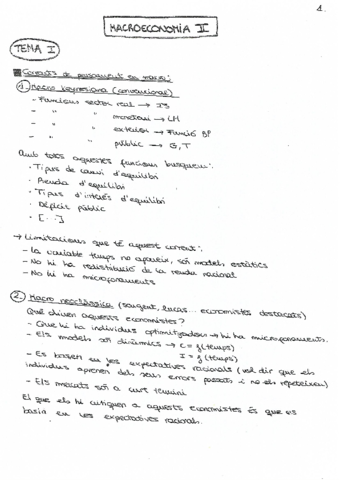 1.
MACROECONOMIA II
TEMA I
Corrents de pensament en macro:
1. Macro keynesiana (convencional)
- Funcions sector real → IS
- " " monetari → LM
- " " exterior → Funció BP
- " " públic → G, T
Amb totes aquestes funcions busquem:
· Tipus de canvi d'equilibri
· Renda d'equilibri
· Tipus d'interès d'equilibri
· Dèficit públic
· [...]
→ Limitacions que té aquest corrent:
- La variable temps no apareix, són models estàtics
- No hi ha redistribució de la renda nacional
- No hi ha microfonaments
2. Macro neoclàssica (Sargent, Lucas... economistes destacats)
Què diuen aquests economistes?
- Que hi ha individus optimitzadors → hi ha microfonaments.
- Els models són dinàmics → C = f(temps)
I = f(temps)
- Es basen en les expectatives racionals (vol dir que els
individus aprenen dels seus errors passats i no els repeteixen)
- Els mercats són a curt termini
El que els hi critiquen a aquests economistes és que es
basin en les expectatives racionals.